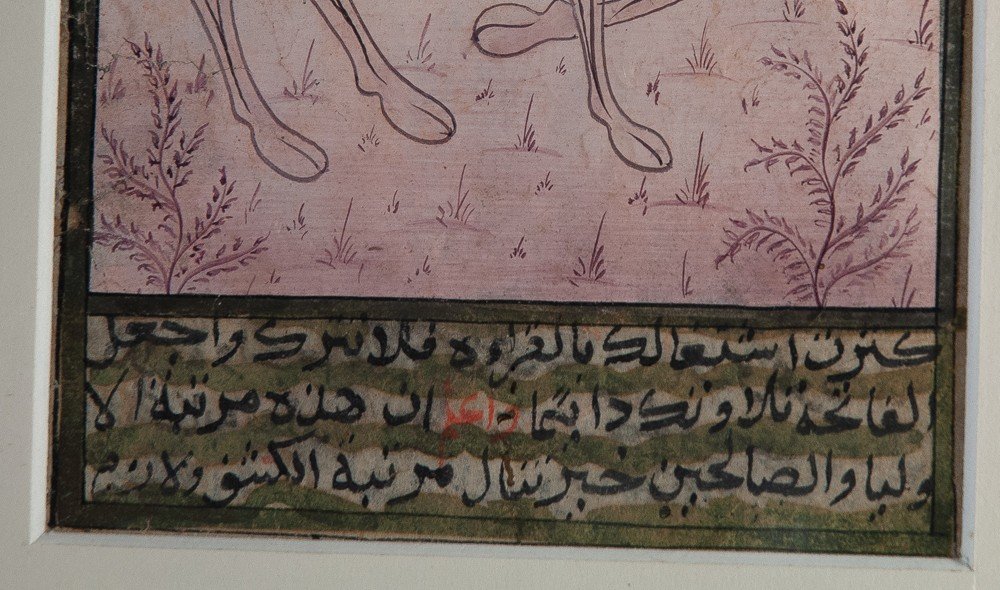 كثرت اشتغالك بالقراوه فلا تترك واجعل
الفاتحة تلاوتك دايما واعلم ان هذه مرتبة الا
وليا والصالحين خير تنال مرتبة الكشف ولا